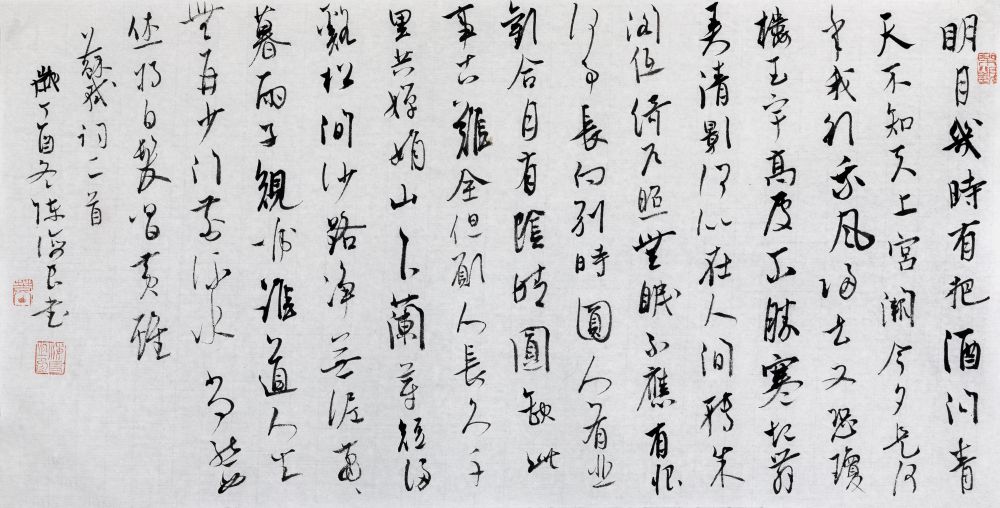 明月幾時有把酒问青
天不知天上宮闕今夕是何
年我欲乘风归去又恐瓊
樓玉宇高處不勝寒起舞
弄清影何似在人间转朱
阁低绮户照無眠不應有恨
何事長向别時圓人有悲
歡合月有陰晴圓缺此
事古難全但願人長久千
里共嬋娟山下蘭芽短浸
谿松间沙路净无泥蕭〻
暮雨子規啼誰道人生
無再少门前流水尚能西
休将白髮唱黄雞
蘇軾词二首
歲丁酉冬陳海良书